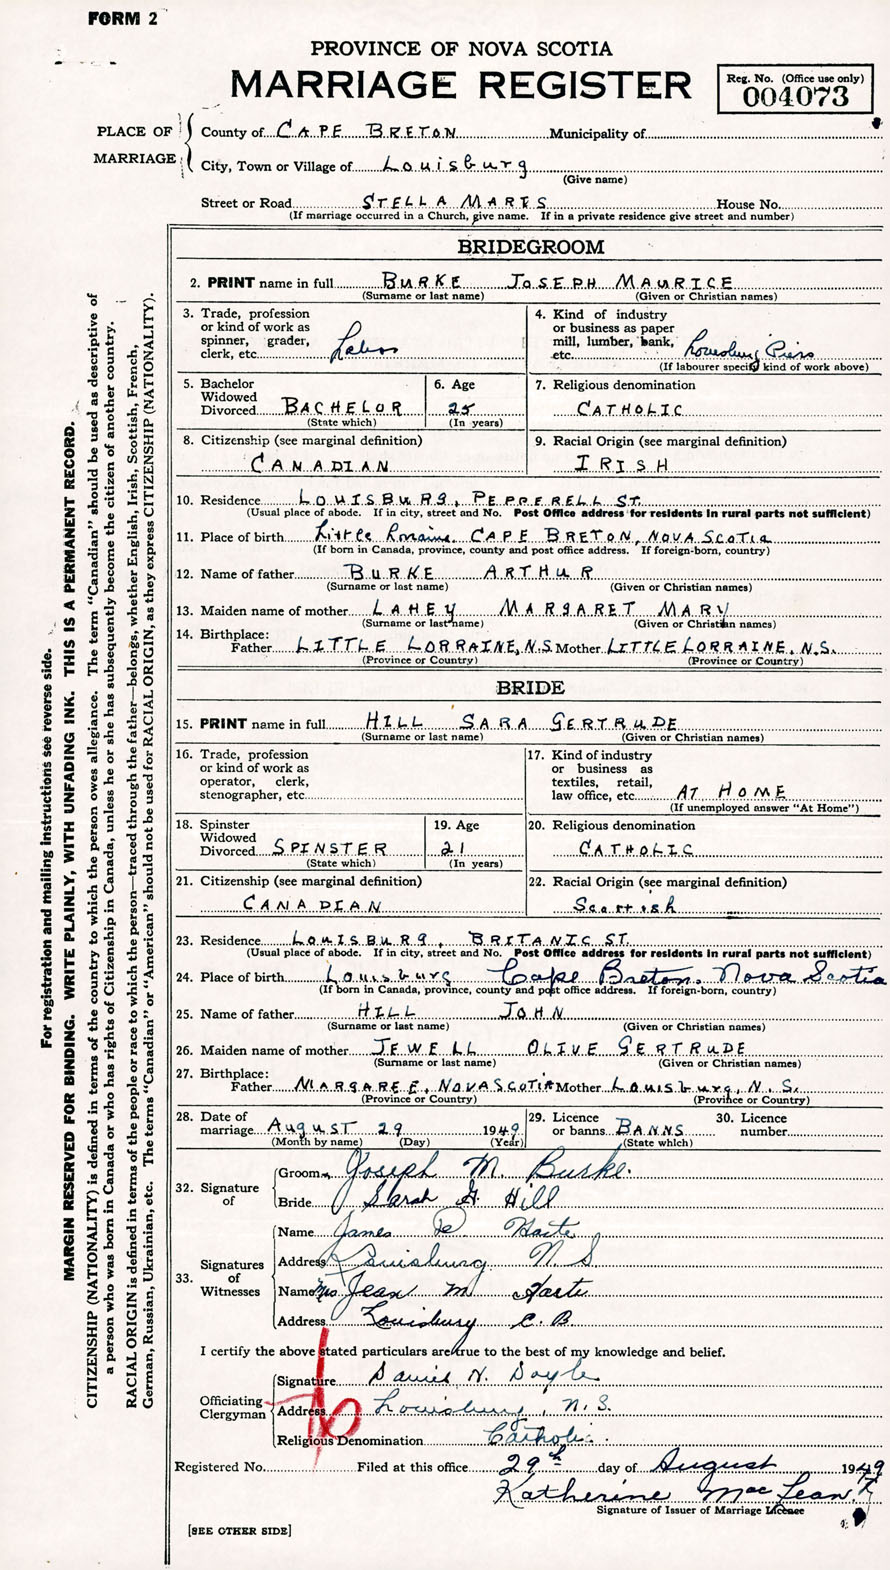 FORM 2
PROVINCE OF NOVA SCOTIA
MARRIAGE REGISTER
Reg. No. (Office use only)
004073
PLACE OF MARRIAGE
County of CAPE BRETON Municipality of
City, Town or Village of Louisburg
(Give name)
Street or Road STELLA MARIS House No.
(If marriage occurred in a Church, give name. If in a private residence give street and number)
BRIDEGROOM
2. PRINT name in full BURKE JOSEPH MAURICE
(Surname or last name) (Given or Christian names)
3. Trade, profession or kind of work as spinner, grader, clerk, etc. Labor
4. Kind of industry or business as paper mill, lumber, bank, etc. Louisburg Piers
(If labourer specify kind of work above)
5. Bachelor Widowed Divorced BACHELOR
(State which)
6. Age 25
(In years)
7. Religious denomination
CATHOLIC
8. Citizenship (see marginal definition)
CANADIAN
9. Racial Origin (see marginal definition)
IRISH
10. Residence LOUISBURG, PEPPERELL ST.
(Usual place of abode. If in city, street and No. Post Office address for residents in rural parts not sufficient)
11. Place of birth Little Loraine, CAPE BRETON, NOVA SCOTIA
(If born in Canada, province, county and post office address. If foreign-born, country)
12. Name of father BURKE ARTHUR
(Surname or last name) (Given or Christian names)
13. Maiden name of mother LAHEY MARGARET MARY
(Surname or last name) (Given or Christian names)
14. Birthplace:
Father LITTLE LORRAINE, N.S. Mother LITTLE LORRAINE, N.S.
(Province or Country) (Province or Country)
BRIDE
15. PRINT name in full HILL SARA GERTRUDE
(Surname or last name) (Given or Christian names)
16. Trade, profession or kind of work as operator, clerk, stenographer, etc.
17. Kind of industry or business as textiles, retail, law office, etc. AT HOME
(If unemployed answer "At Home")
18. Spinster Widowed Divorced SPINSTER
(State which)
19. Age 21
(In years)
20. Religious denomination
CATHOLIC
21. Citizenship (see marginal definition)
CANADIAN
22. Racial Origin (see marginal definition)
Scottish
23. Residence LOUISBURG, BRITANIC ST.
(Usual place of abode. If in city, street and No. Post Office address for residents in rural parts not sufficient)
24. Place of birth Louisburg Cape Breton, Nova Scotia
(If born in Canada, province, county and post office address. If foreign-born, country)
25. Name of father HILL JOHN
(Surname or last name) (Given or Christian names)
26. Maiden name of mother JEWELL OLIVE GERTRUDE
(Surname or last name) (Given or Christian names)
27. Birthplace:
Father MARGAREE, NOVA SCOTIA Mother Louisburg, N.S.
(Province or Country) (Province or Country)
28. Date of marriage AUGUST 29 1949
(Month by name) (Day) (Year)
29. Licence or banns BANNS
(State which)
30. Licence number
32. Signature of
Groom Joseph M. Burke.
Bride Sarah G. Hill
33. Signatures of Witnesses
Name James Harte
Address Louisburg N. S
Name Mrs Jean M Harte
Address Louisburg C. B
I certify the above stated particulars are true to the best of my knowledge and belief.
Officiating Clergyman
Signature Daniel N. Doyle
Address Louisburg, N.S.
Religious Denomination Catholic.
Registered No. Filed at this office 29th day of August 1949
Katherine MacLean
Signature of Issuer of Marriage Licence
[SEE OTHER SIDE]
For registration and mailing instructions see reverse side.
MARGIN RESERVED FOR BINDING. WRITE PLAINLY, WITH UNFADING INK. THIS IS A PERMANENT RECORD.
CITIZENSHIP (NATIONALITY) is defined in terms of the country to which the person owes allegiance. The term "Canadian" should be used as descriptive of
a person who was born in Canada or who has rights of Citizenship in Canada, unless he or she has subsequently become the citizen of another country.
RACIAL ORIGIN is defined in terms of the people or race to which the person—traced through the father—belongs, whether English, Irish, Scottish, French,
German, Russian, Ukrainian, etc. The terms "Canadian" or "American" should not be used for RACIAL ORIGIN, as they express CITIZENSHIP (NATIONALITY).